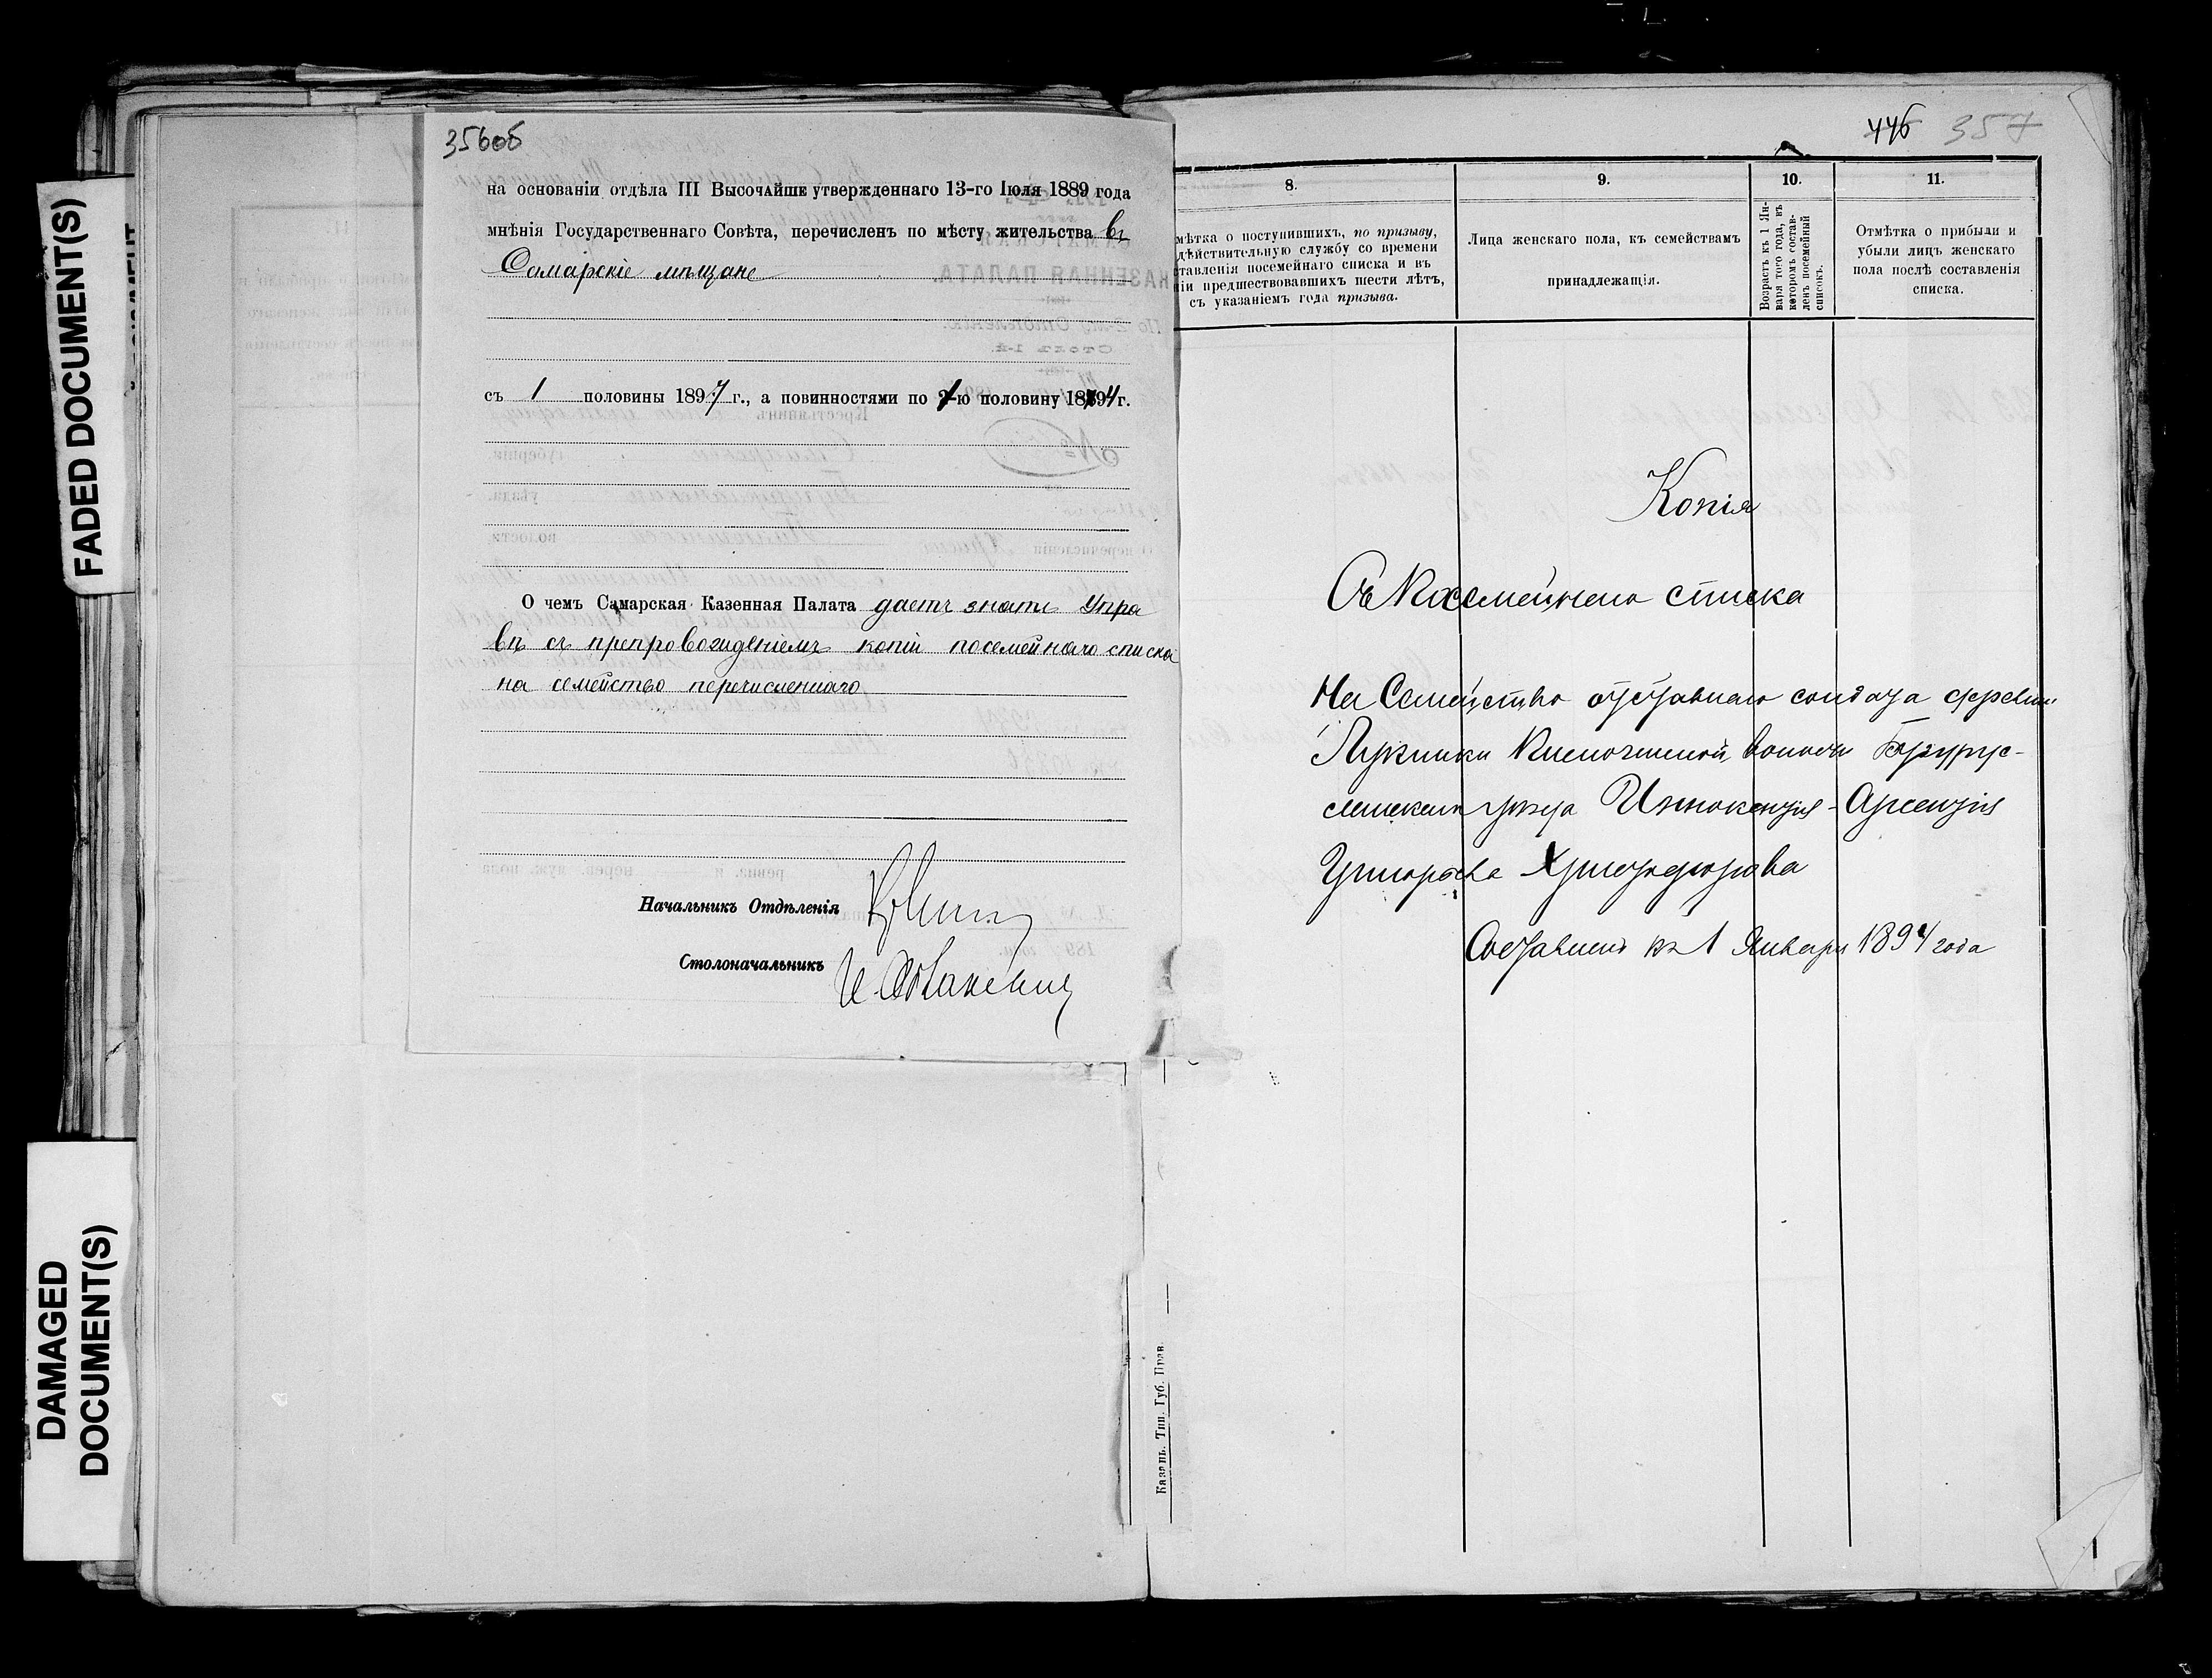 FADED DOCUMENT(S)
DAMAGED
DOCUMENT(S)
356об
на основаніи отдѣла III Высочайше утвержденнаго 13-го Іюля 1889 года
мнѣнія Государственнаго Совѣта, перечисленъ по мѣсту жительства въ
Самарскіе мѣщане
съ 1 половины 1897 г., а повинностями по 1-ю половину 1894 г.
О чемъ Самарская Казенная Палата даетъ знать Упра
вѣ съ препровожденіемъ копіи посемейнаго списка
на семейство перечисленнаго
Начальникъ Отдѣленія
Столоначальникъ
446 357
8.
мѣтка о поступившихъ, по призыву,
дѣйствительную службу со времени
ставленія посемейнаго списка и въ
ніи предшествовавшихъ шести лѣтъ,
съ указаніемъ года призыва.
9.
Лица женскаго пола, къ семействамъ
принадлежащія.
10.
Возрастъ къ 1 Ян-
варя того года, въ
которомъ состав-
ленъ посемейный
списокъ.
11.
Отмѣтка о прибыли и
убыли лицъ женскаго
пола послѣ составленія
списка.
Копія
Съ Посемейнаго списка
На Семейство отставнаго солдата деревни
Лукинки волости Бугурус-
ланскаго уѣзда Иннокентія-Арсентія
Христофорова
Составленъ къ 1 Января 1894 года
Казань. Тип. Губ. Прав.